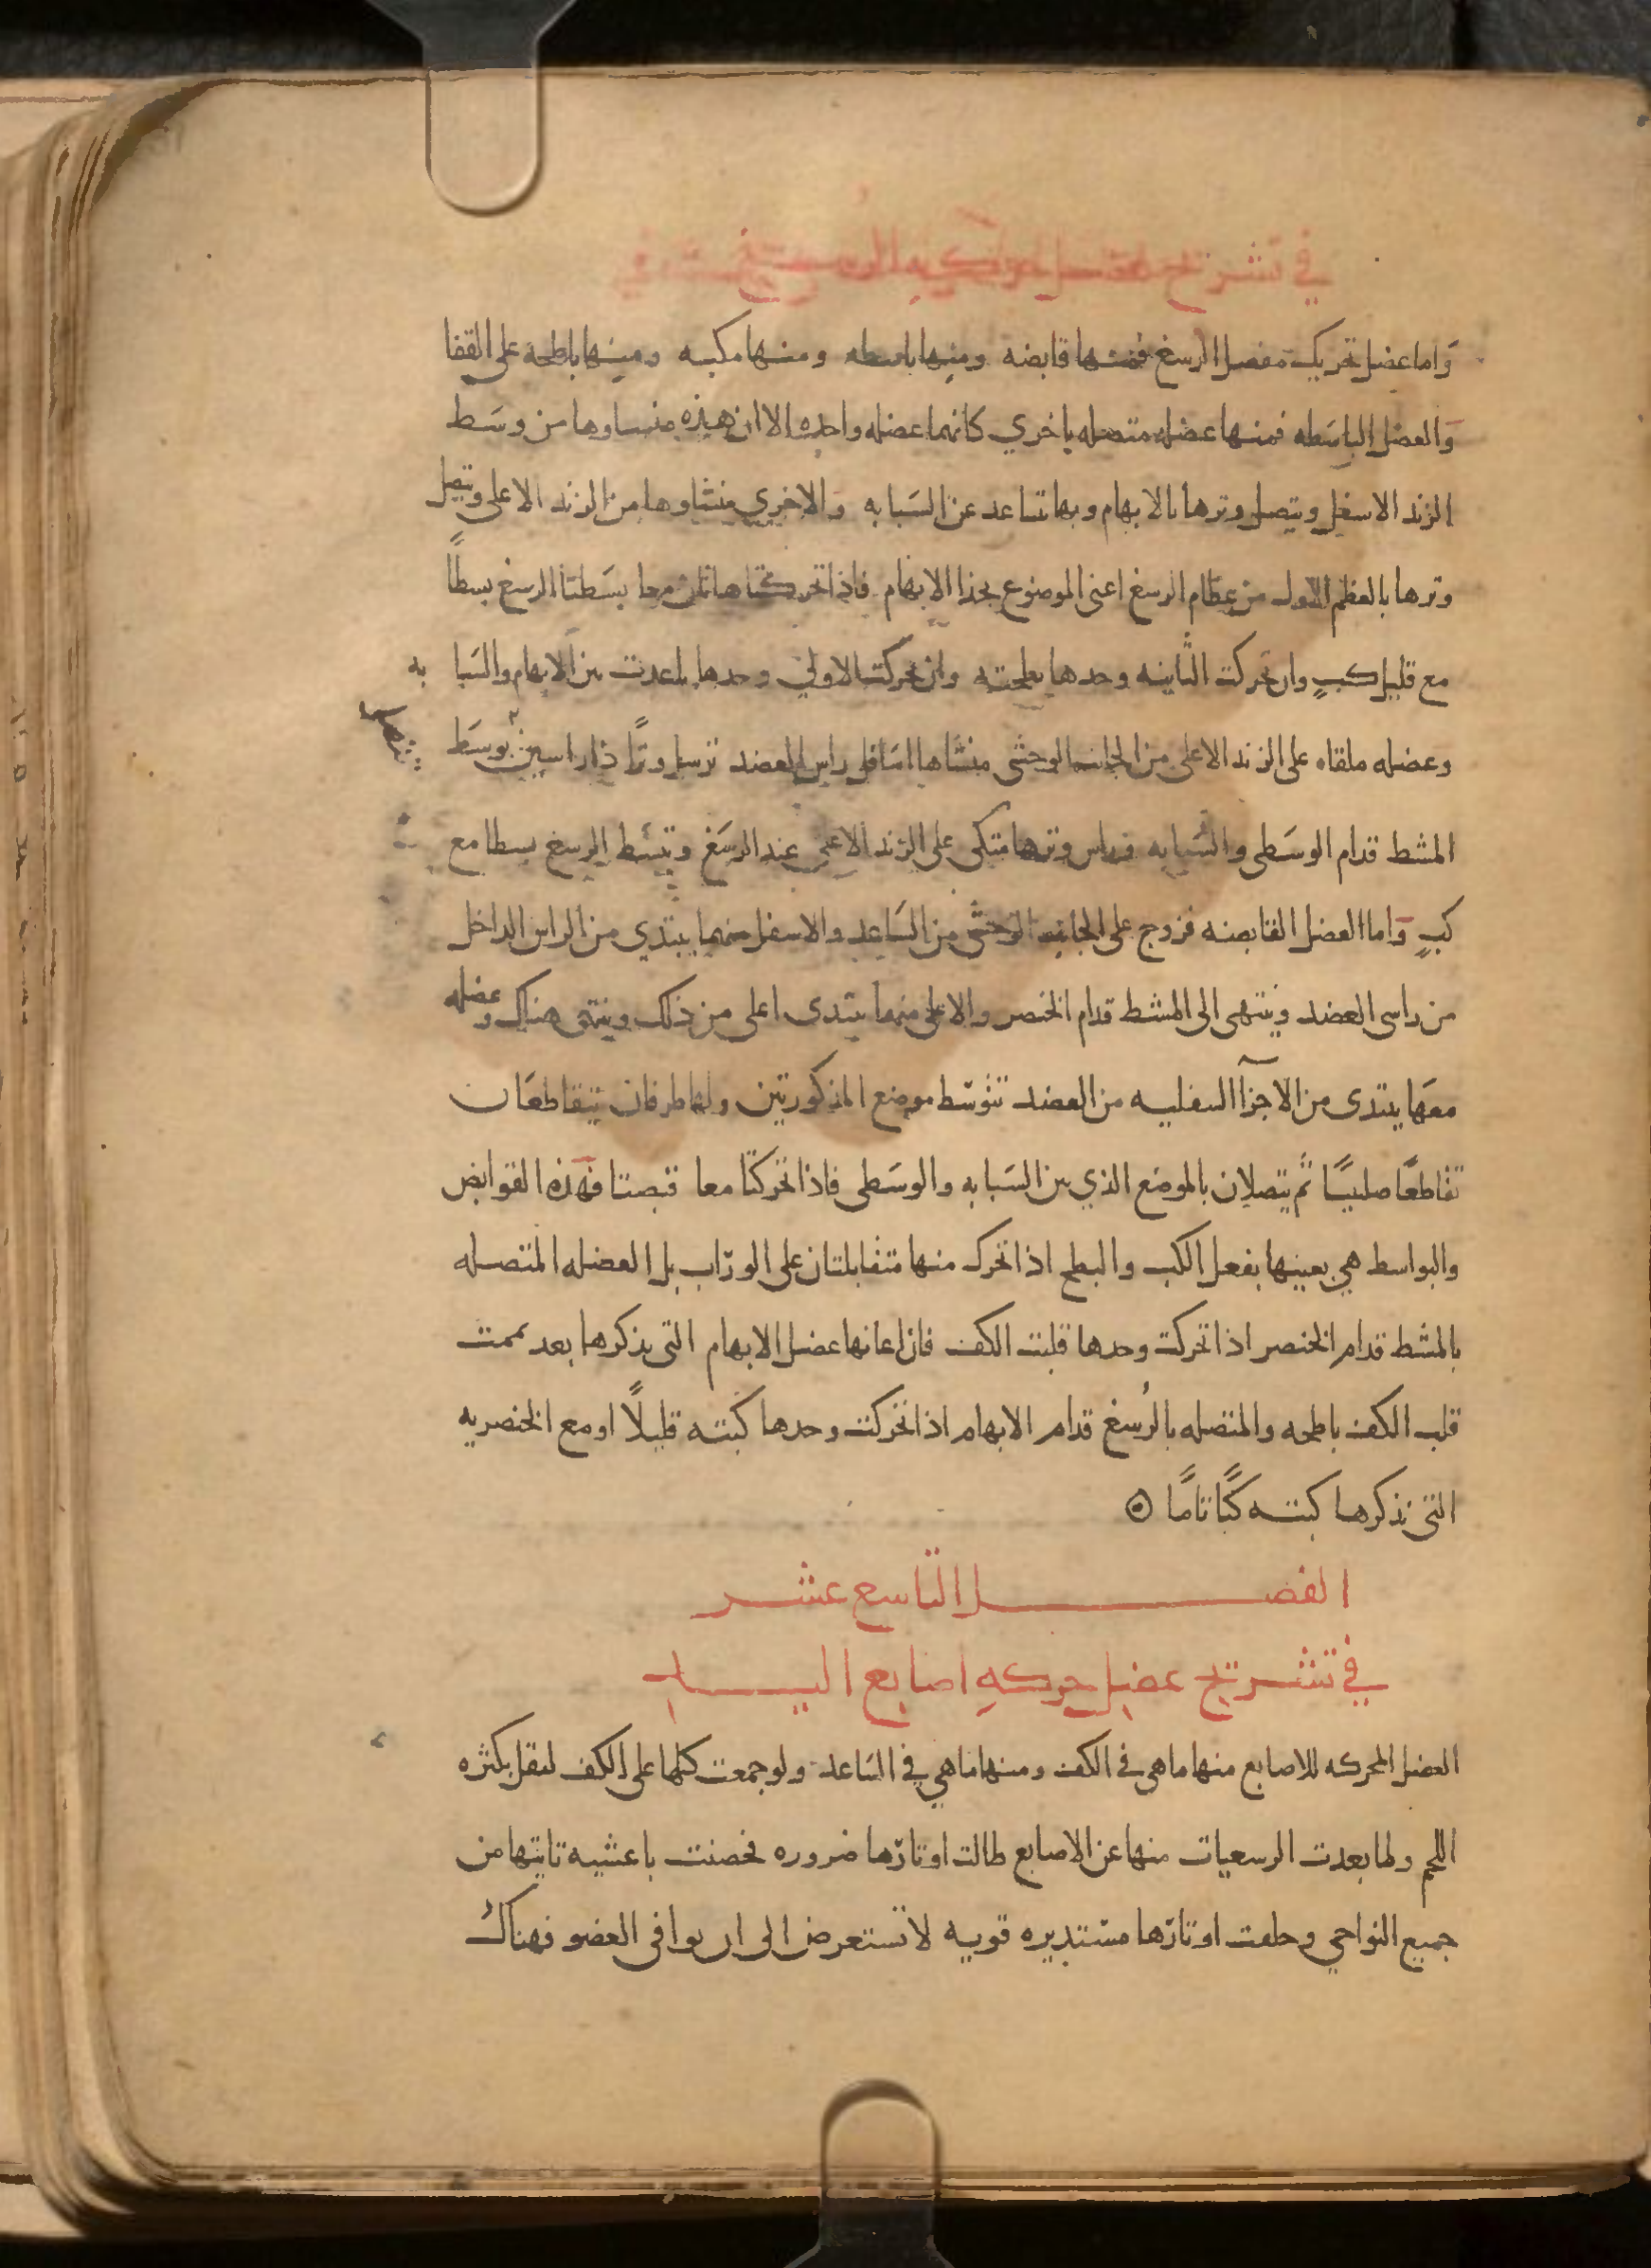 في تشريح عضل حركة الرسغ
واما عضل تحريك مفصل الرسغ فمنها قابضه ومنها باسطه ومنها مكبه ومنها باطحة على القفا
والعضل الباسَطه فمنها عضله متصله باخري كانهما عضله واحده الا ان هذه منساوها من وسَط
الزند الاسفل ويتصل وترها بالابهام وبها تتباعد عن السَبابه والاخري منشاوها من الزند الاعلى ويتصل
وترها بالعظم الاول من عظام الرسغ اعنى الموضوع بحذا الابهام فاذا تحركتا هاتان معا بسَطتا الرسغ بسطاً
مع قليل كبٍ وان تحركت الثانيه وحدها بطحته وان تحركت الاولي وحدها باعدت بين الابهام والسَبا به
وعضله ملقاه على الزند الاعلى من الجانب الوحشى منشاها اسَافل راس العضد ترسل وترًا ذا راسين بوسَط
المشط قدام الوسَطى والسَبابه وراس وترها متكى على الزند الاعلى عند الرسَغ وتبسَط الرسغ بسطا مع
كبٍ واما العضل القابضه فزوج على الجانب الوحشى من السَاعد والاسفل منهما يبتدي من الراس الداخل
من راسى العضد وينتهى الى المشط قدام الخنصر والاعلى منهما يبتدى اعلى من ذلك وينتهى هناك وعضله
معهَا يبتدى من الاجزآ السفليه من العضد تتوسّط موضع المذكورتين ولها طرفان يتقاطعَان
تقاطعًا صليبيًا ثم يتصلان بالموضع الذي بين السَبابه والوسَطى فاذا تحركتا معا قبضتا فهذه القوابض
والبواسط هي بعينها بفعل الكب والبطح اذا تحرك منها متقابلتان على الورّاب بل العضله المتصله
بالمشط قدام الخنصر اذا تحركت وحدها قلبت الكف فان اعانها عضل الابهام التى يذكرها بعد تممت
قلب الكف باطحه والمتصله بالرُسغ قدام الابهام اذا تحركت وحدها كبته قليلاً او مع الخنصريه
التى نذكرها كبته كبًا تامًا
الفصل التاسع عشر
في تشريح عضل حركه اصابع اليد
العضل المحركه للاصابع منها ما هى في الكف ومنها ما هي في السَاعد ولو جمعت كلها على الكف لثقل بكثره
اللحم ولما بعدت الرسعيات منها عن الاصابع طالت اوتارّها ضروره فحصنت باعشيه تاتيها من
جميع النواحي وحلقت اوتارّها مستديره قويه لا تستعرض الى ان توافى العضو فهناك